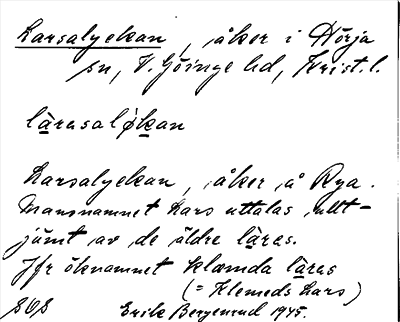 Larsalyckan, åker i Hörja
sn, V. Göinge hd, Krist. l.
lärasaløkan
Larsalyckan, åker å Rya.
Mansnamnet Lars uttalas allt-
jämt av de äldre läras.
Jfr öknamnet klæmda läras
(= Klemeds Lars)
Erik Bergenrud 1945.